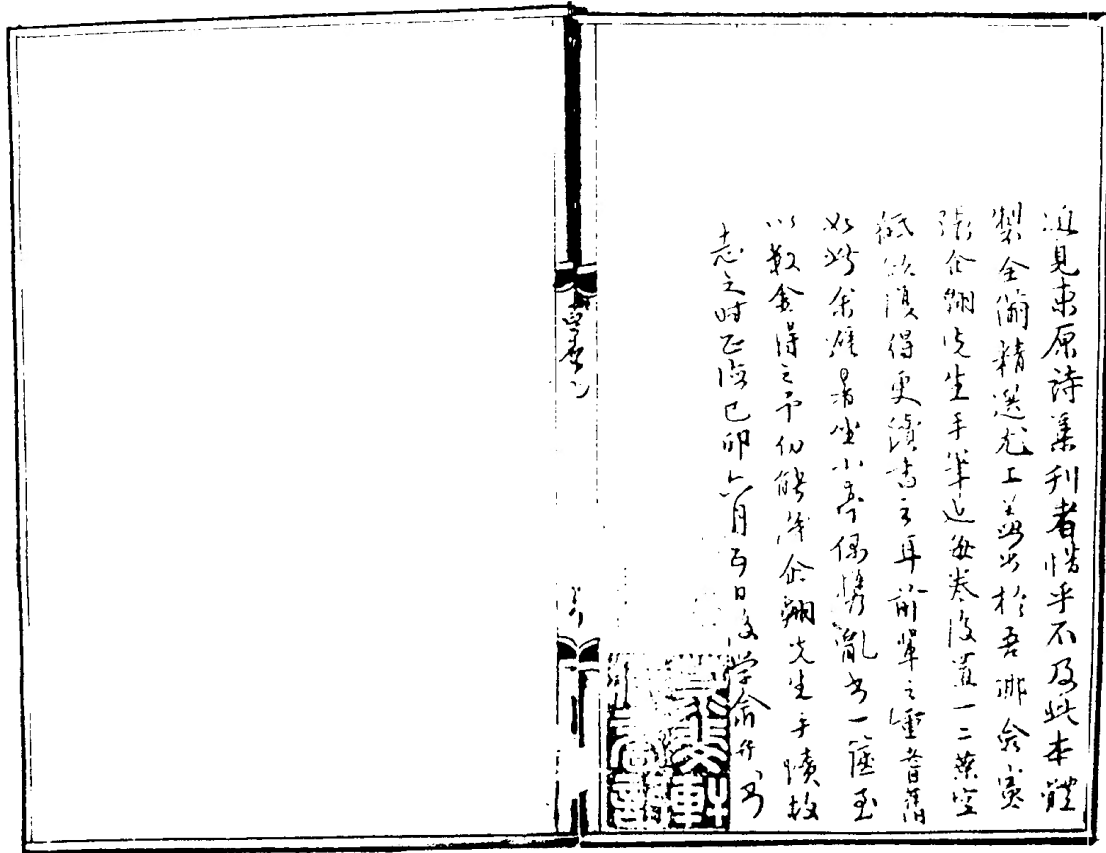 近見東原詩集刊者惜乎不及此本體
製全備精選尤工蓋出於吾鄉俞寒
張企翱先生手筆也每卷後置一二葉空
紙欲後得更續書之耳前輩之重耆舊
如此余雅坐小齋偶攜亂書一篋至
以數金得之予仍能識企翱先生手蹟故
志之時正德己卯六月五日文學俞弁書